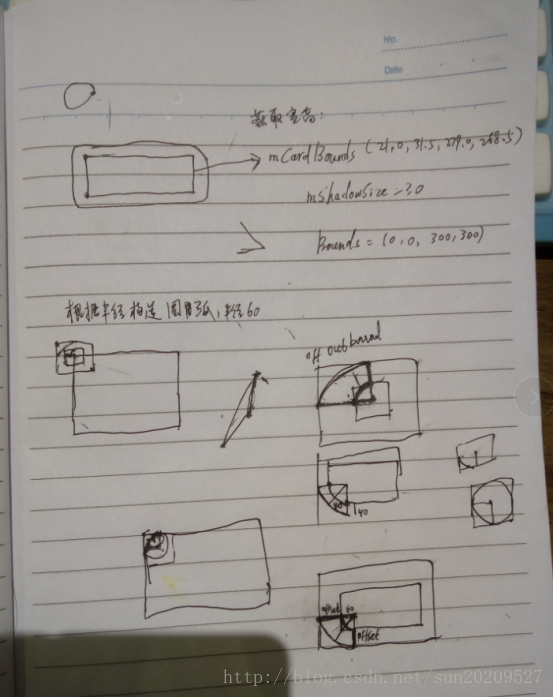 No.
Date
获取宽高:
mCardBounds (21.0, 31.5, 279.0, 268.5)
mShadowSize = 30
Bounds = (0, 0, 300, 300)
根据半径构造圆角弧,半径60
outbound
40
offset 60
offset
http://blog.csdn.net/sun20209527